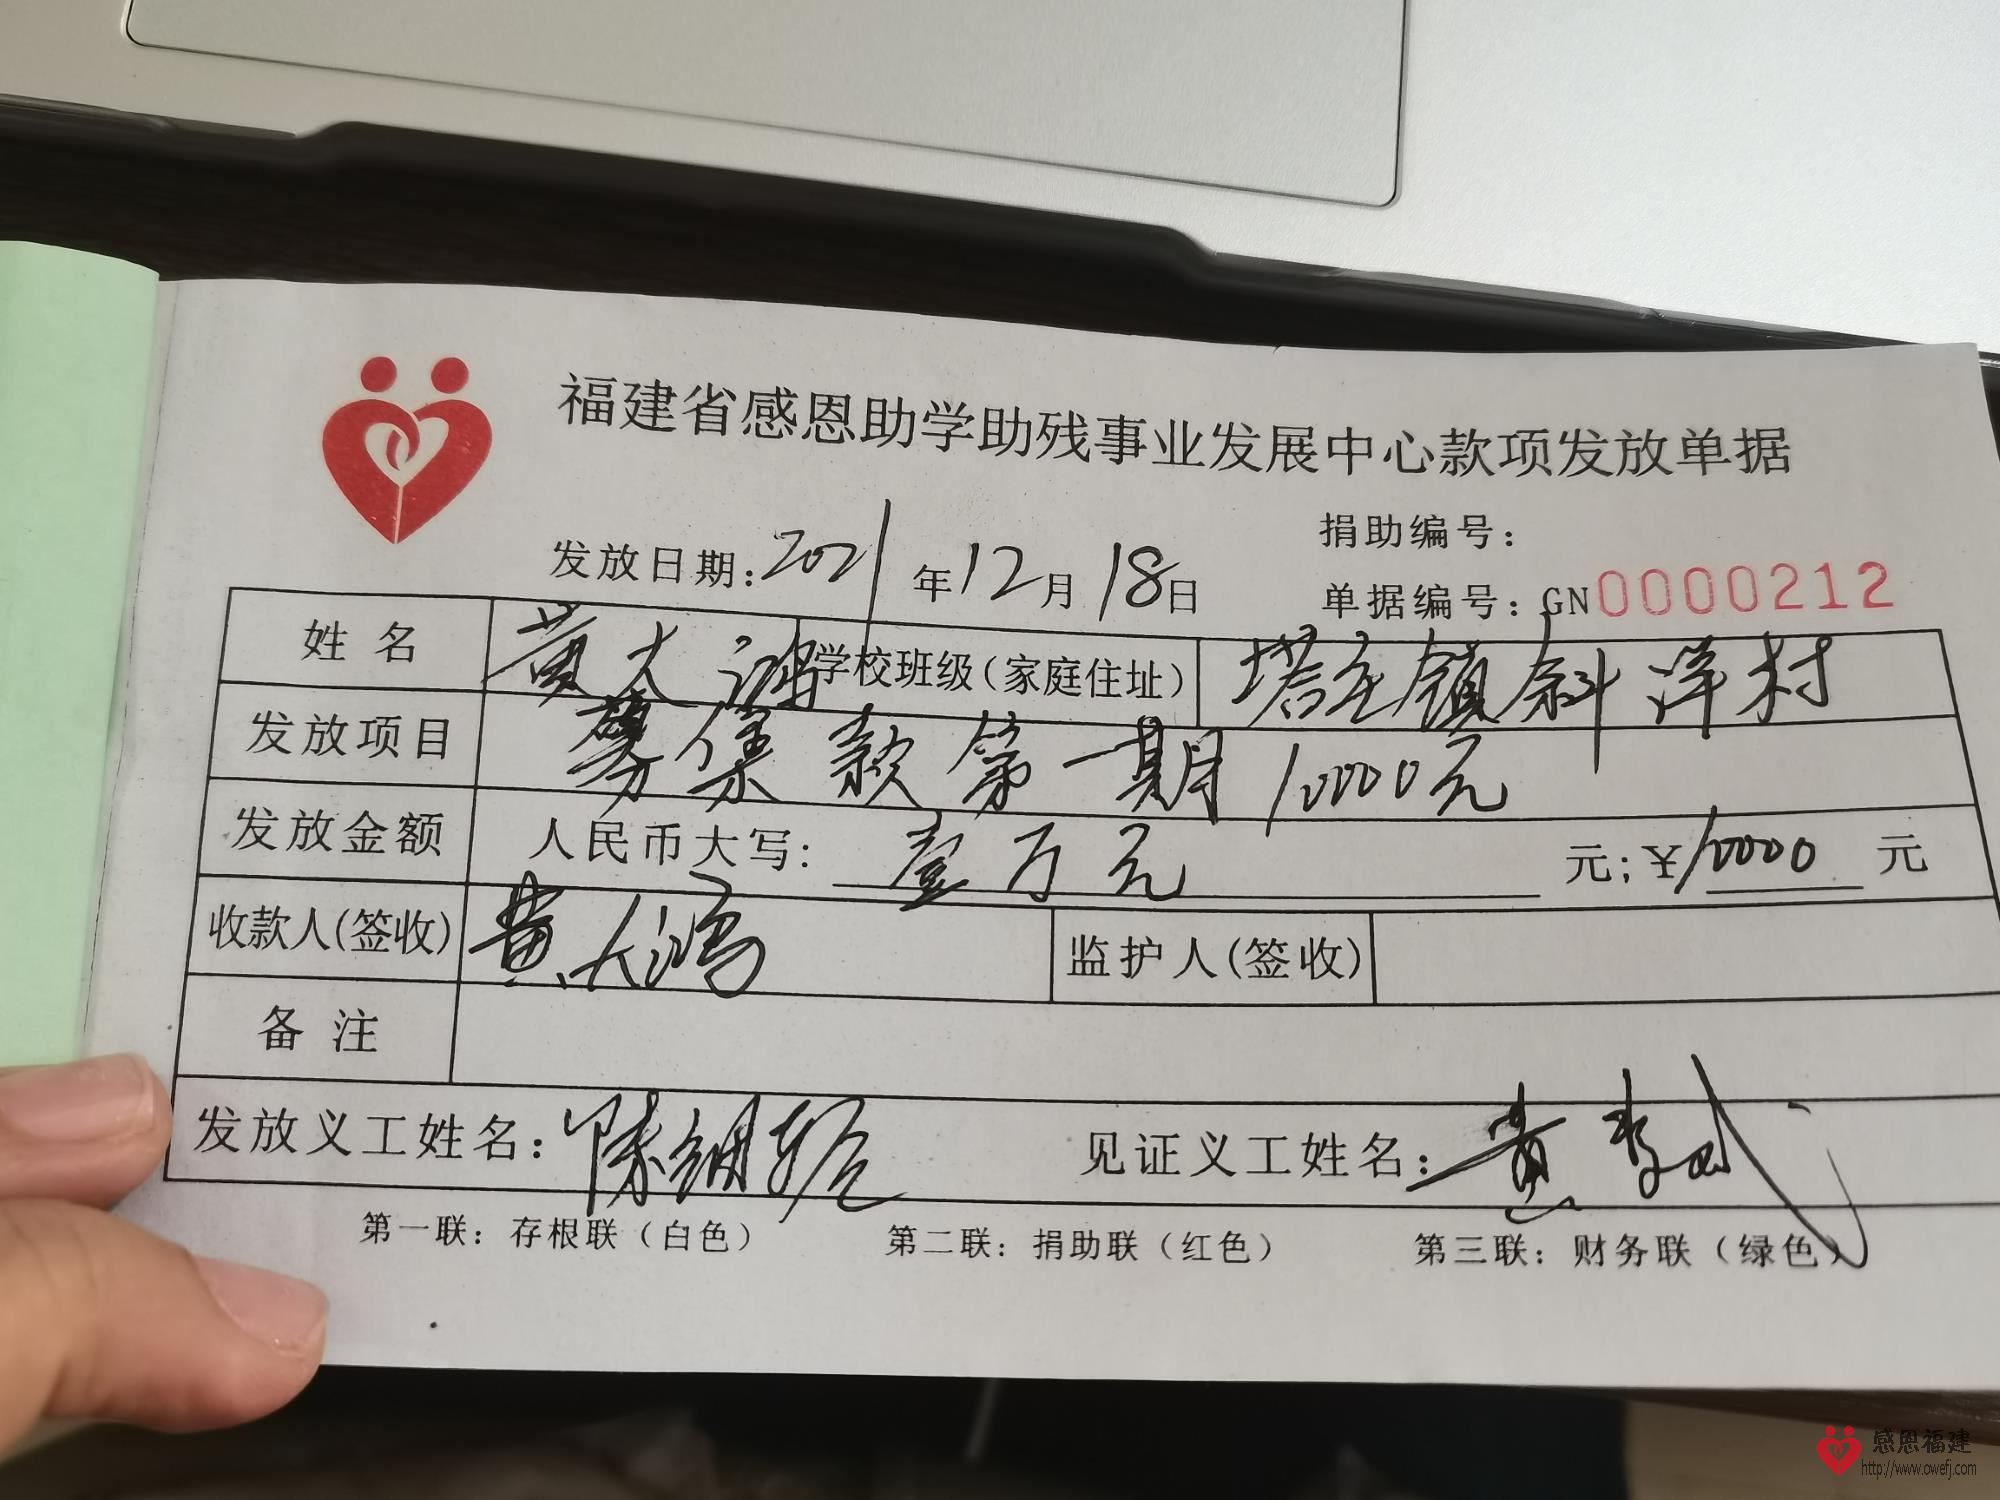 福建省感恩助学助残事业发展中心款项发放单据
捐助编号：
发放日期：2021年12月18日
单据编号：GN0000212
姓名 黄大鸿 学校班级（家庭住址） 塔庄镇斜洋村
发放项目 募集款第一期10000元
发放金额 人民币大写：壹万元 元；¥10000元
收款人(签收) 黄大鸿 监护人(签收)
备注
发放义工姓名：陈 见证义工姓名：黄
第一联：存根联（白色） 第二联：捐助联（红色） 第三联：财务联（绿色）
感恩福建
http://www.owefj.com